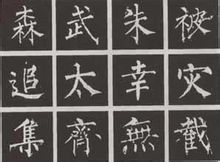 森武朱被
追太幸灾
集齊無截